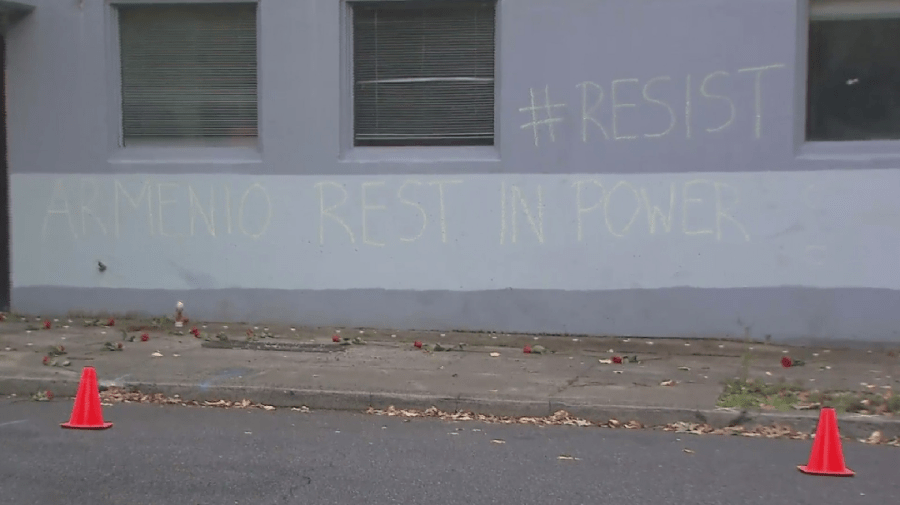 #RESIST
ARMENIO REST IN POWER